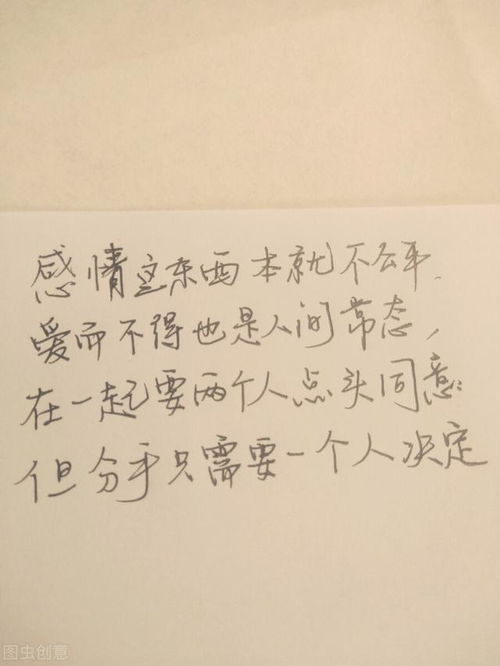 感情这东西本就不公平.
爱而不得也是人间常态,
在一起要两个人点头同意
但分手只需要一个人决定
图虫创意